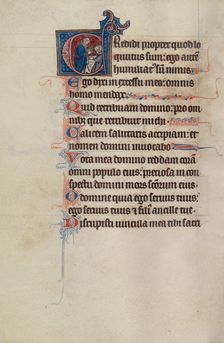 Credidi propter quod lo
cutus sum: ego autem
humiliat' sum nimis.
Ego dixi in excessu meo: omnis
homo mendax.
Quid retribuam domino: pro om
nibus que retribuit michi.
Calicem salutaris accipiam: et
nomen domini invocabo.
Vota mea domino reddam coram
omni populo eius: preciosa in con
spectu domini mors sanctorum eius.
O domine quia ego servus tuus:
ego servus tuus et filius ancille tue.
Dirupisti vincula mea tibi sacri